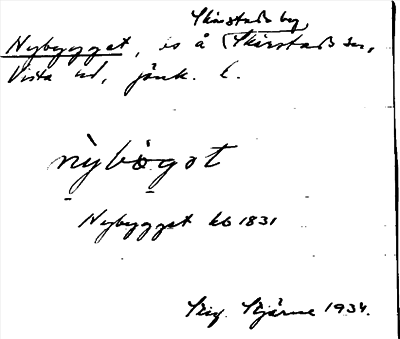 Skärstads by
Nybygget, ls å Skärstads sn,
Vista hd, Jönk. l.
nỳbögot
Nybygget kb 1831
Stig Stjärne 1934.